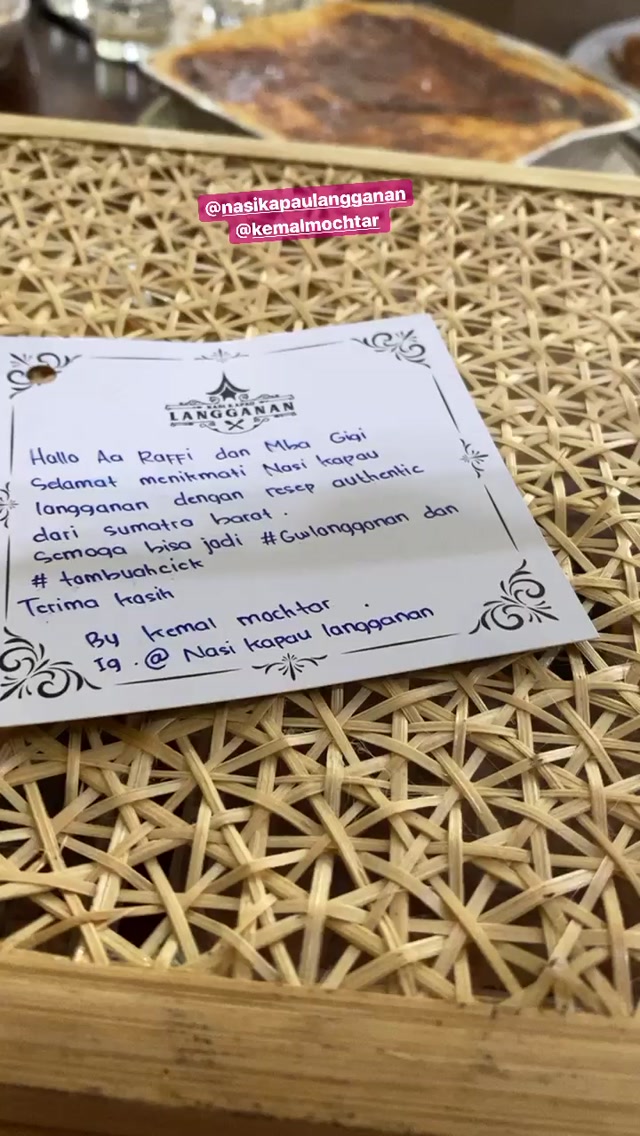 @nasikapaulangganan
@kemalmochtar
NASI KAPAU
LANGGANAN
Hallo Aa Raffi dan Mba Gigi
Selamat menikmati Nasi kapau
langganan dengan resep authentic
dari sumatra barat.
Semoga bisa jadi #Gwlangganan dan
# tambuahcick
Terima kasih
By kemal mochtar
Ig . @ Nasi kapau langganan